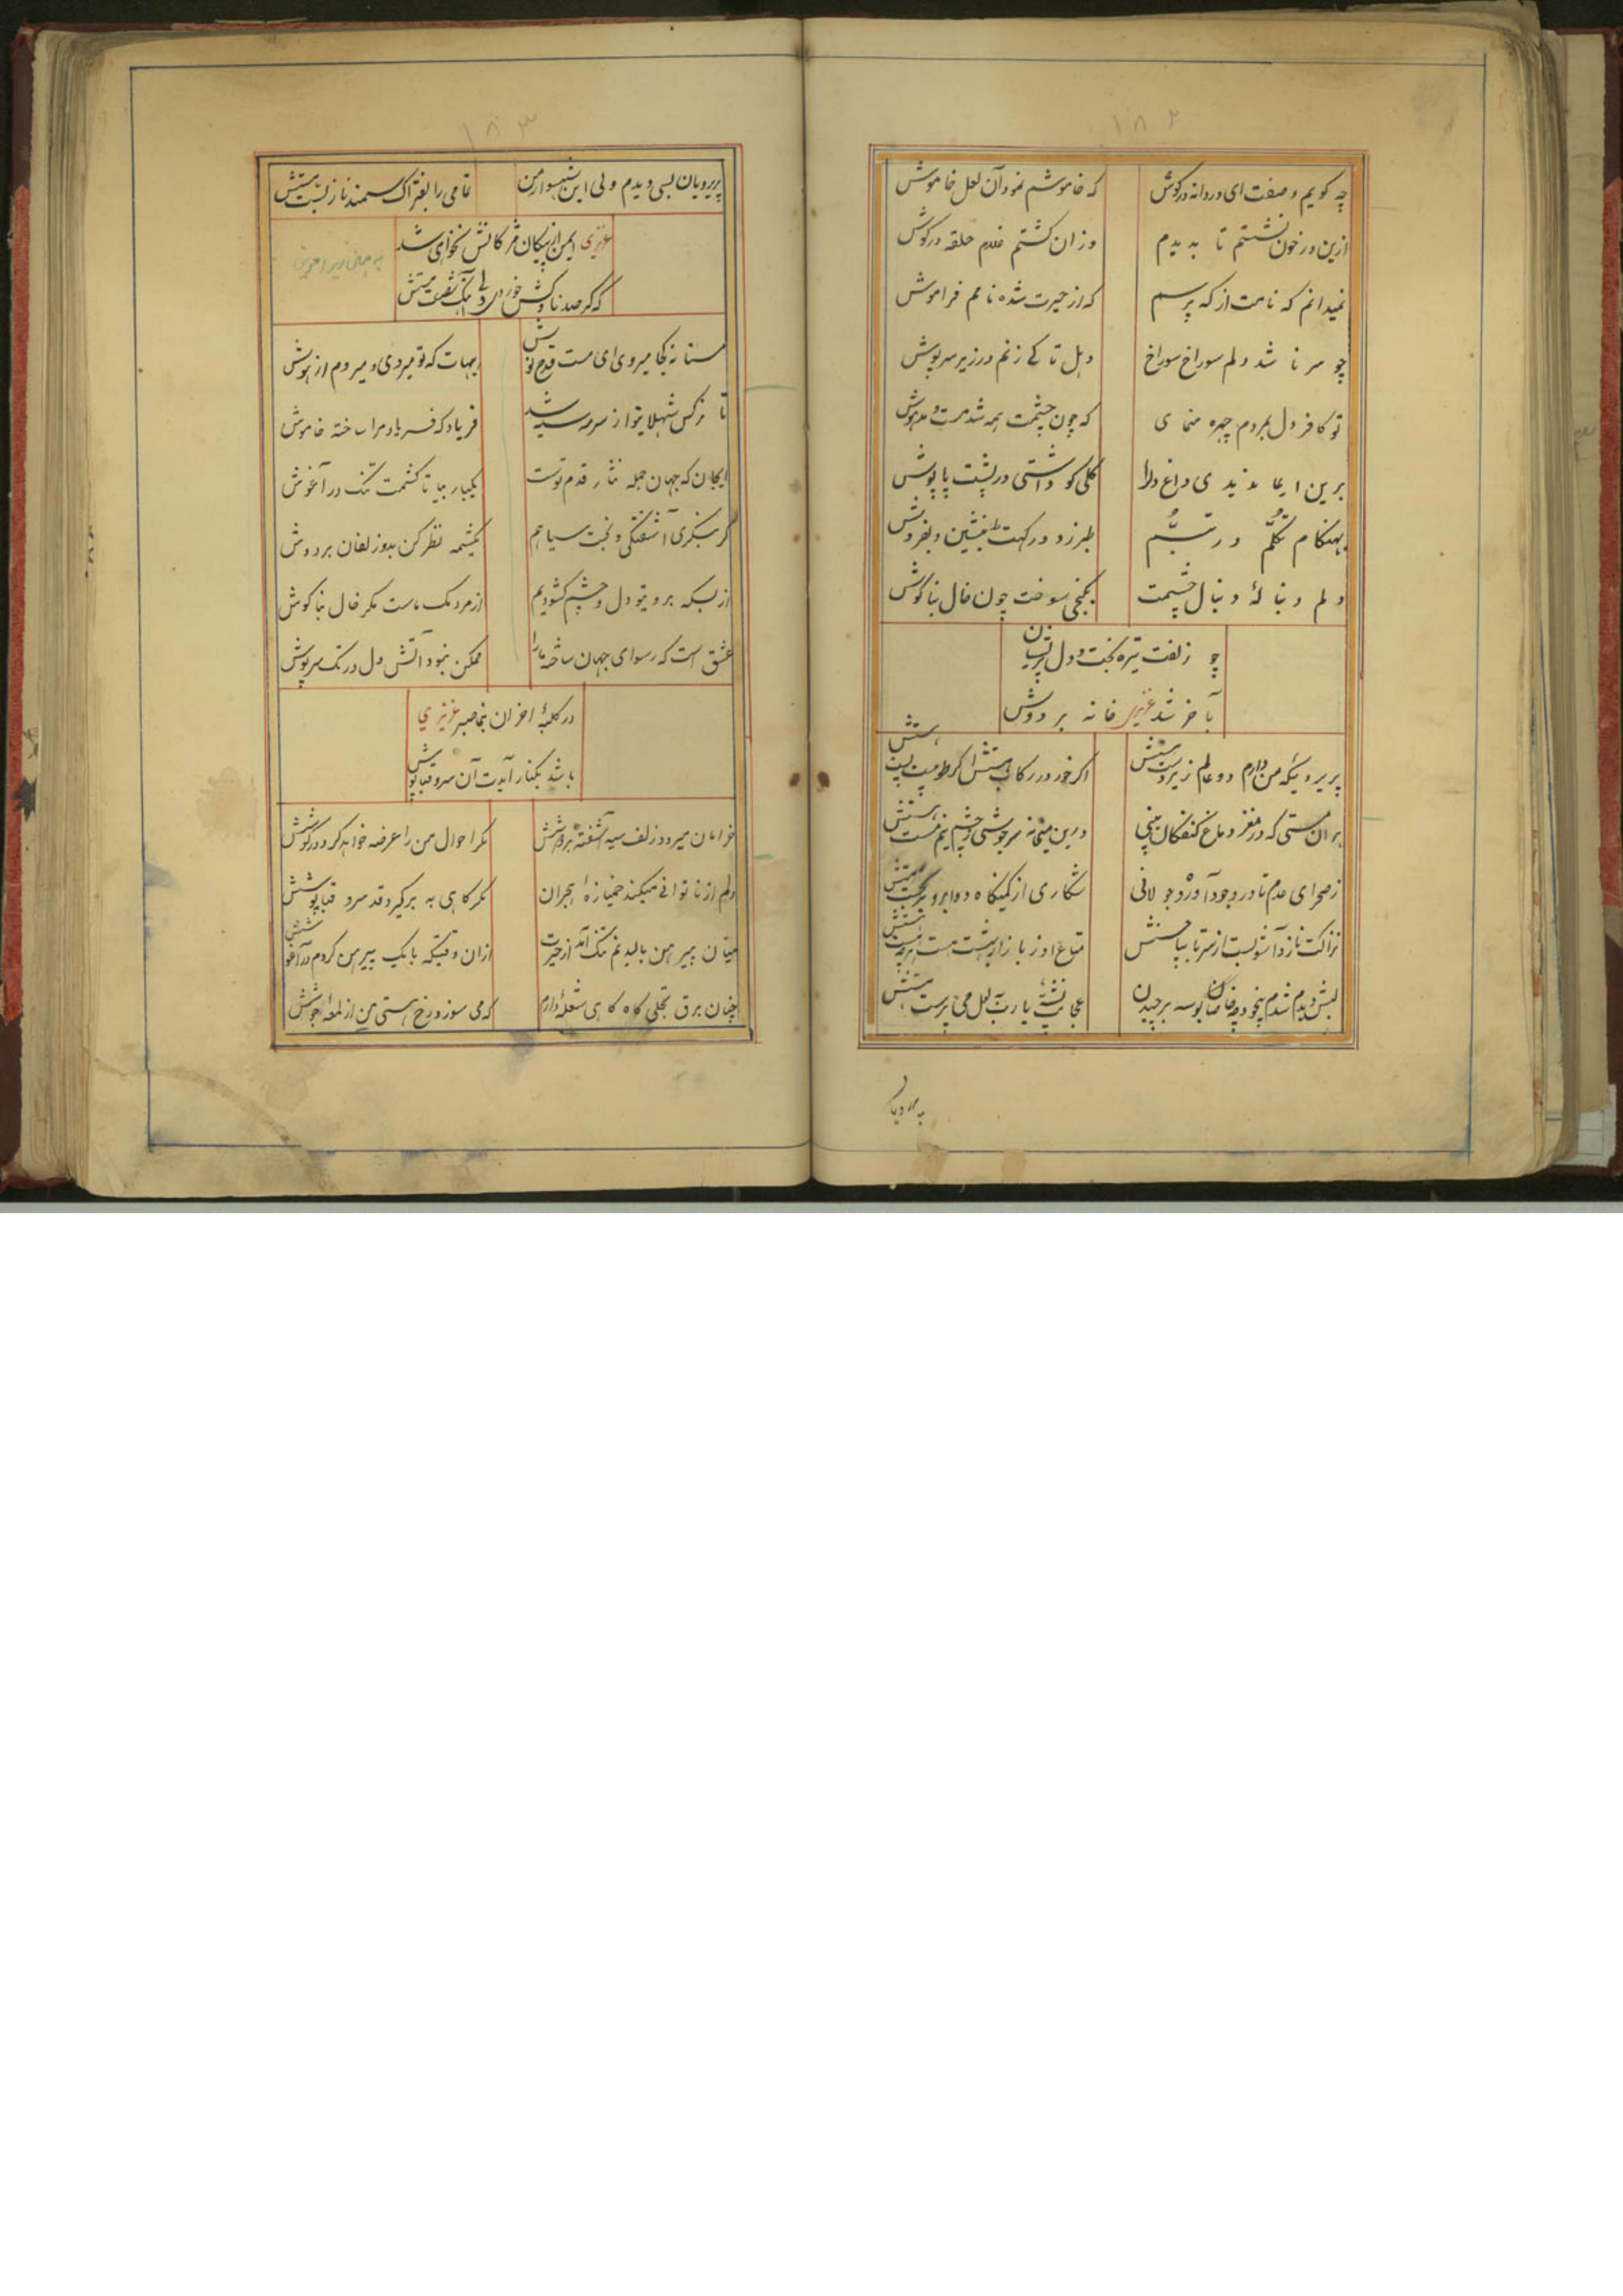 ۱۸۲
چه کویم وصفت ای دردانه درکوش که خاموشم نمود آن لعل خاموش
ازین در خون نشستم تا بدیدم وزان کشتم غلام حلقه درکوش
نمیدانم که نامت از که پرسم که از حیرت شده نامم فراموش
چو سرنا شد دلم سوراخ سوراخ دهل تا کے زنم در زیر سرپوش
تو کافر دل بمردم چهره منمای که چون چشمت همه شد مست و مدهوش
برین ایما ندیدی داغ دلرا کلی کو داشتی در پشت پاپوش
بهنکام تکلّم در تبسُّم طبرزد در کهت بنشین و بفروش
دلم دنبالهٔ دنبال چشمت بکنجی سوخت چون خال بناکوش
چو زلفت تیره بخت و دل پریشان
بآخر شد عزیز خانه بردوش
پریرویکه من دارم دو عالم زیر دستش اکر خور در رکاب
بران مستی که در مغز و دماغ کنفکان بینی درین میخانه سرجوشی ز چشم نیم مستش
ز صحرای عدم تا در وجود آورد جولانی شکاری از کمینکاه دو ابروی
نزاکت ناز و آشوبست از سر تا بپا متاع او ز بازار
لبش دیدم شدم بیخود بوسه برچیدن عجایب یارب لعل می پرستش
پریرویان
۱۸۳
پریرویان بسی دیدم ولی این شهسوار من عامی را بفتراک سمند ناز بستستش
عزیزی ایمن از پیکان مژکانش نخواهی شد
که کر صد ناوکش خوردی
مستانه کجا میروی ای مست قدح نوش هیهات که تو میروی و میروم از هوش
تا نرکس شهلای تو از سرمه سیه شد فریاد که فریاد مرا ساخته خاموش
ایجان که جهان جمله نثار قدم توست یکبار بیا تا کشمت تنک در آغوش
کر بنکری آشفتکی و بخت سیاهم یکشمه نظر کن بدو زلفان بر دوش
از بسکه بروی تو دل و چشم کشودیم از مردمک ماست مکر خال بناکوش
عشق است که رسوای جهان ساخته مارا ممکن نبود آتش دل در تک سرپوش
در کلبهٔ احزان بنما صبر عزیزی
باشد بکنار آیدت آن سرو قباپوش
خرامان میرود زلف سیه آشفته بر دوشش مکر احوال من را عرضه خواهد کرد در کوشش
دلم از ناتوانی میکند خمیازهٔ هجران مکر کاهی به بر کیرد قد سرو قباپوشش
میان پیرهن بالیدنم تنک آمد از حیرت ازان وقتیکه با یک پیرهن کردم در آغوشش
چنان برق تجلی کاه کاهی شعله دارم که می سوزد رخ هستی من از لمعه جوشش